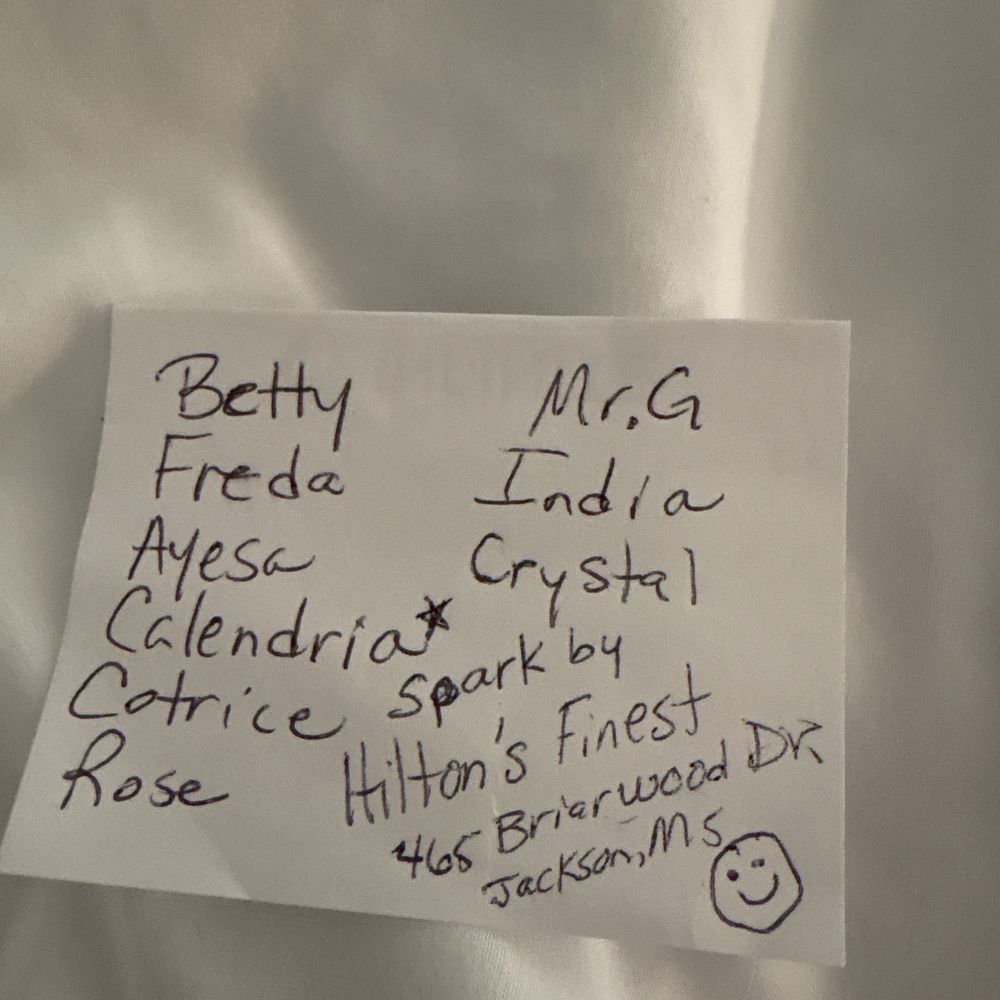 Betty
Freda
Ayesa
Calendria*
Cotrice
Rose
Mr. G
India
Crystal
Spark by
Hilton's Finest
465 Briarwood Dr.
Jackson, MS